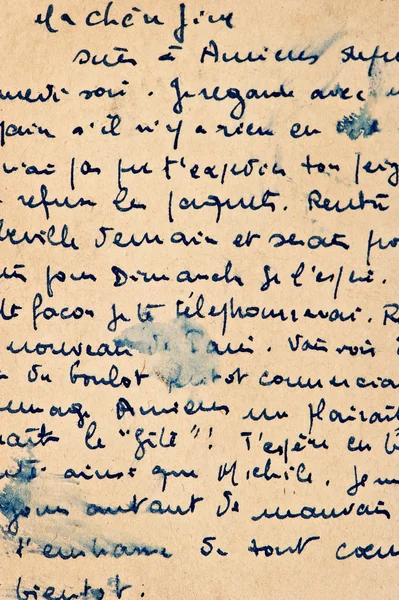 Ma chère Jine
suis à Amiens depu
medi soir. Je regarde avec
s'il n'y a rien en
pas pu t'expédier ton peig
refuse les paquets. Rentre
beville demain et serais
pour Dimanche je l'espère.
de façon je te téléphonerai. R
nouveau de Paris. Vais voir
du boulot plutôt commercia
mage Amiens me plairait
le "gîte"! T'espère en b
ainsi que Michèle. Je
autant de mauvais
t'embrasse de tout coeu
bientot.